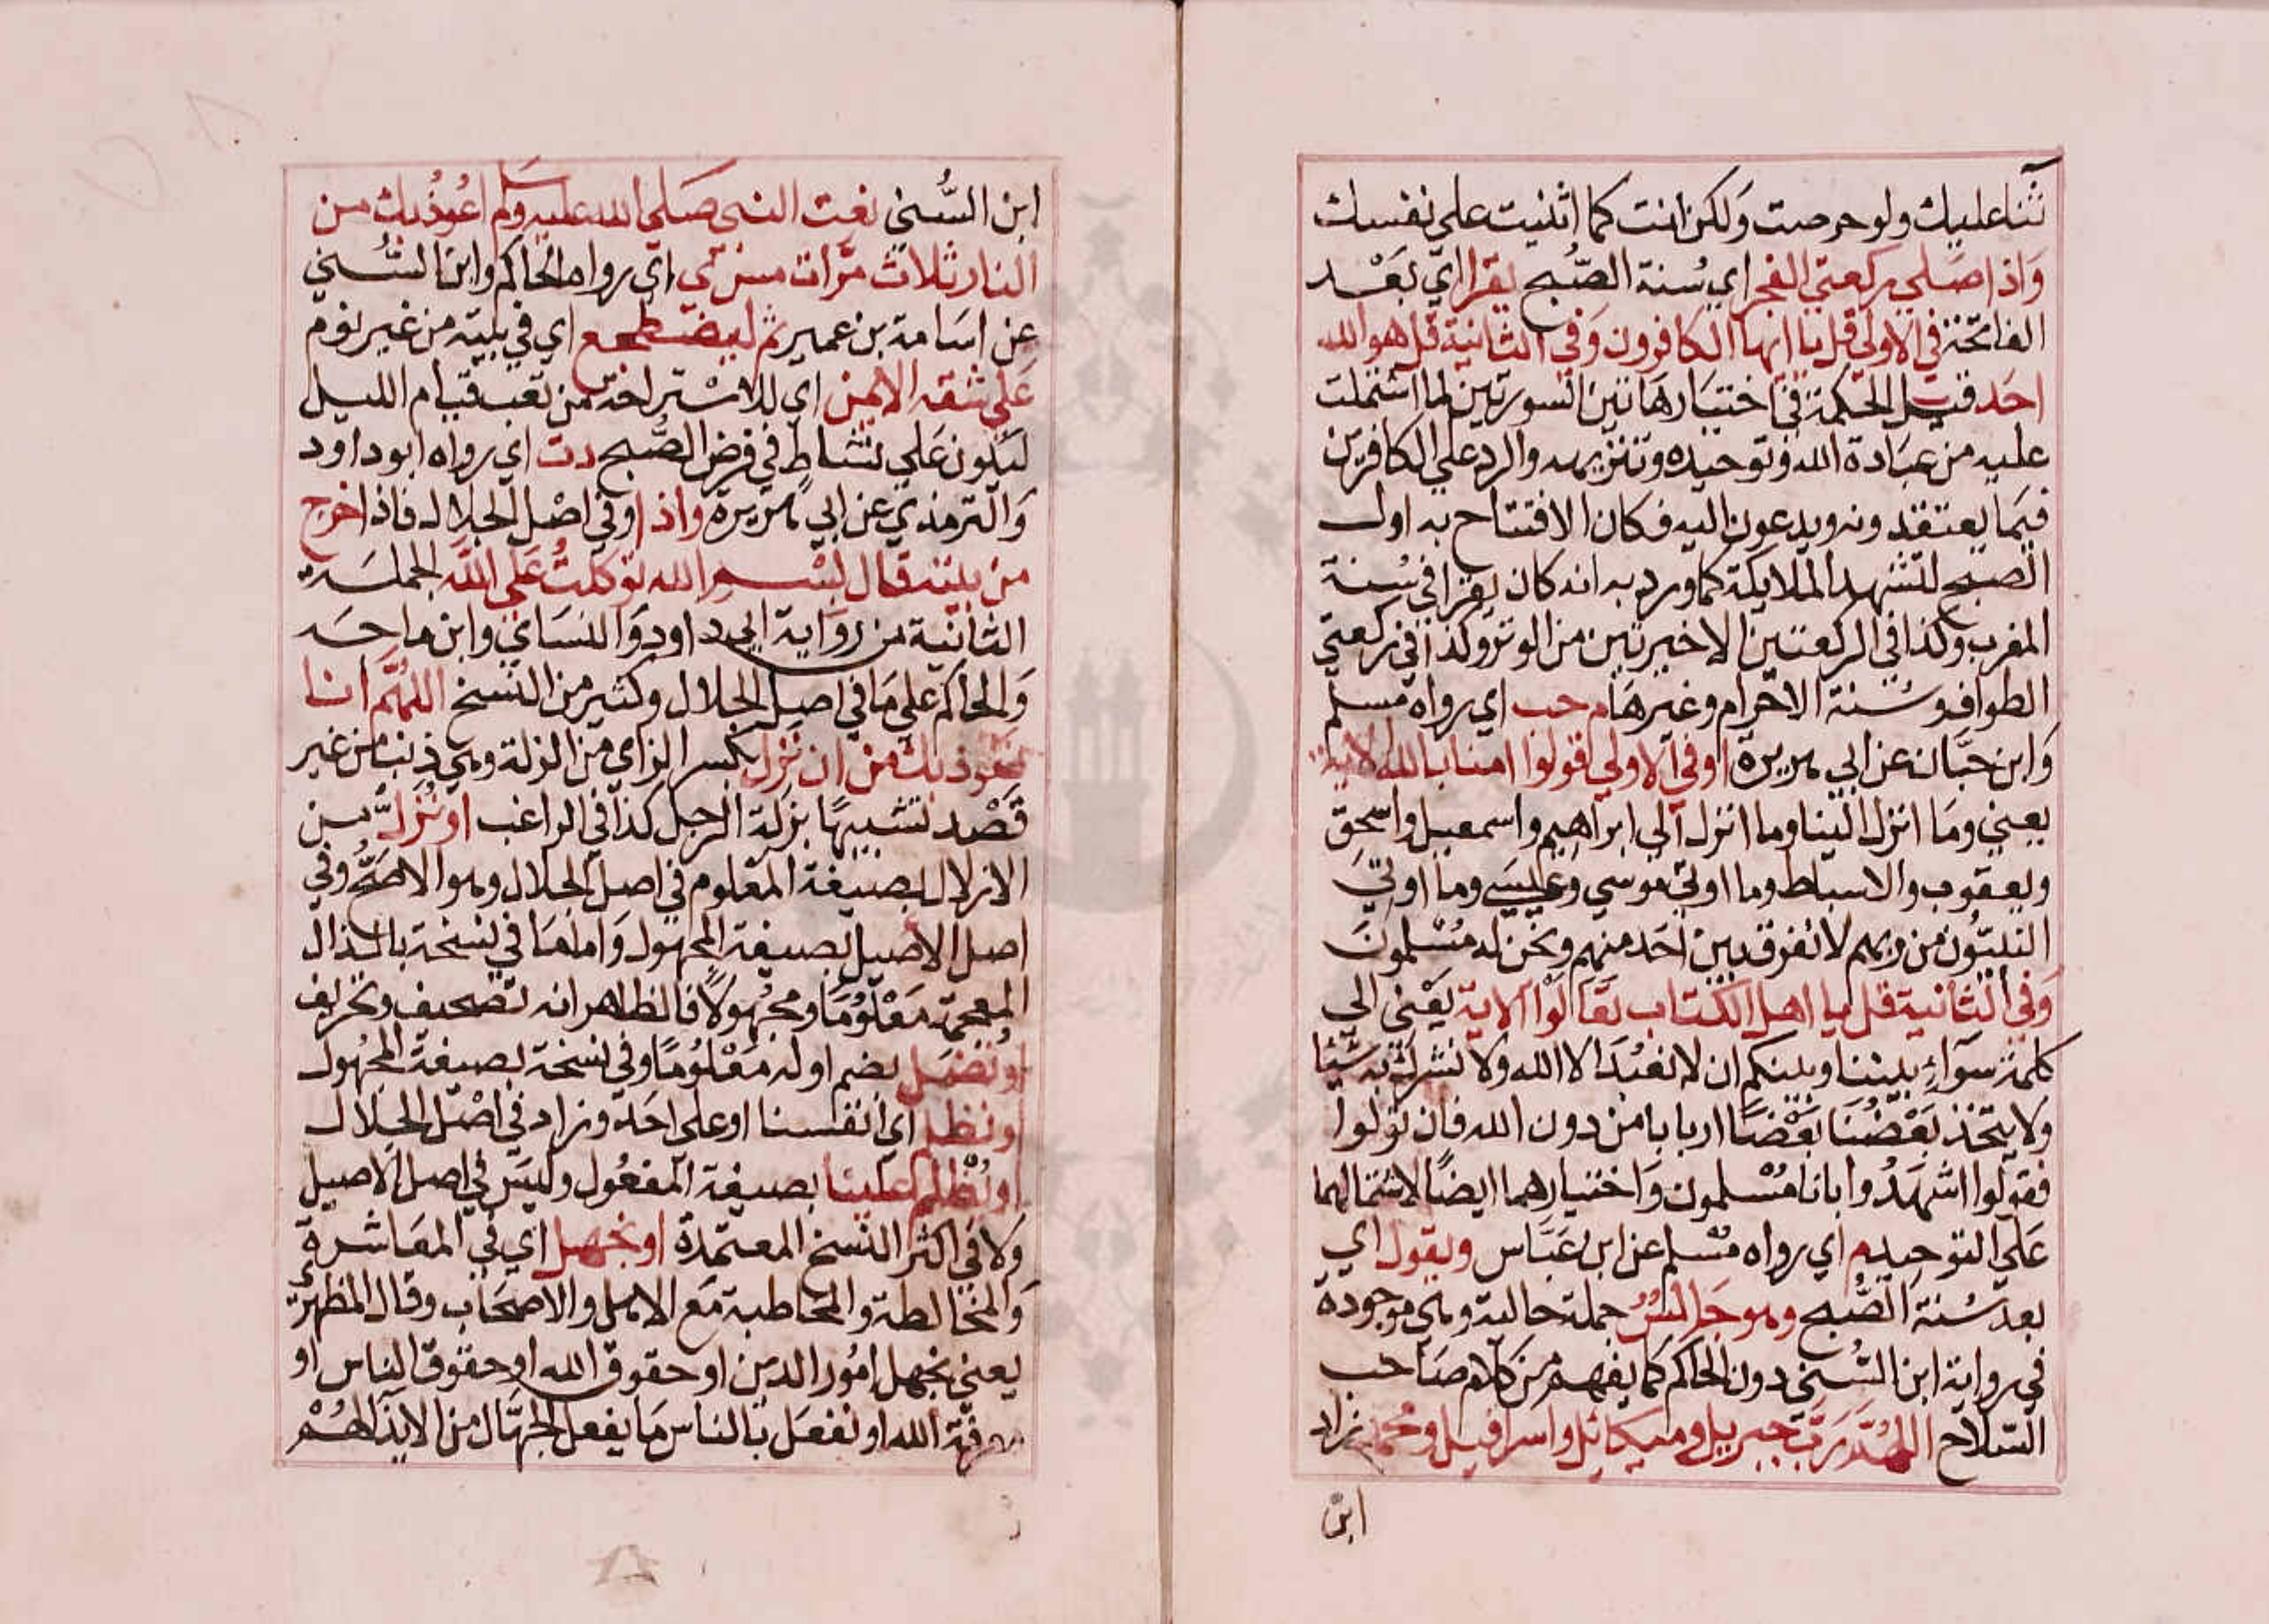 ثناعليك ولو حرصت وَلكن انت كما اثنيت على نفسك
وَاذا صَلى ركعتي الفجر اي سُنة الصُّبح يقرا اي بَعْد
الفاتحة في الاولي قل يا ايها الكافرون وَفي الثانية قل هو الله
احَد قيل الحكمة في اختيار هَاتين السورتين لما اشتملت
عليه من عبَادة الله وتوحيده وتنزيهه والرد علي الكافرين
فيمَا يعتقدونه ويدعون اليه فكان الافتتاح به اول
الصبح لتشهد الملايكة كما ورد به انه كان يقرا في سُنة
المغرب وكذا في الركعتين الاخيرتين من الوتر وكذا في ركعتي
الطواف وسُنة الاحرام وغيرهَا م حب اي رواه مسلم
وَابن حبَّان عن ابي هريرة او في الاولي قولوا امنا بالله الاية
يعني ومَا انزل الينا وما انزل الي ابراهيم واسمعيل واسحق
ويعقوب والاسباط وما اوتي موسي وعيسي وما اوتي
النبيُّون من ربهم لا نفرق بين احَد منهم ونحن له مُسْلمونَ
وَفي الثانية قل يا اهل الكتاب تعَالَوْا الاية يَعْني الي
كلمة سَوَآءٍ بيننا وبينكم ان لا نعْبُدَ الا الله ولا نشرك به شيئا
ولا يتخذ بَعْضُنَا بَعْضًا اربابا من دون الله فان تولوا
فقولوا اشهَدُوا بانا مُسْلمون وَاختيارهما ايضًا لاشتمالهما
عَلي التوحيد م اي رواه مسْلم عن ابن عَبَّاس ويقول اي
بعد سُنة الصُّبح وهو جَالسٌ جملة حالية وهي موجودة
في رواية ابن السُّني دون الحاكم كما يفهم من كلام صَاحب
السّلاح اللهُمَّ رَبَّ جبريل وميكائل واسرافيل ومحمد زاد
ابن
ابن السُّني نعت النبي صَلي الله عليه وسلم اعُوذ بك من
النار ثلاث مرَّات مس ي اي رواه الحاكم وابن السُّني
عن اسَامة بن عمير ثم ليضطجع اي في بيته من غير نوم
عَلي شقه الايمن اي للاسْتراحة من تعب قيام الليل
ليكون عَلي نشاطٍ في فرض الصُّبح دت اي رواه ابو داود
وَالترمذي عن ابي هُريرة واذا وفي اصْل الجلال فاذا خرج
من بيته قال بسْم الله توكلتُ عَلى الله الجملَة
الثانية من رواية ابي داود وَالنسَاي وابن ماجَه
وَالحاكم علي مَا في اصيل الجلال وكثير من النسخ اللهُمَّ انا
نعوذ بك من ان نزل بكسر الزاي من الزلة وهي ذنب من غير
قَصْد تشبيهًا بزلة الرجل كذا في الراغب او نُزلَّ من
الازلال بصيغة المعْلوم في اصيل الجلال وهو الاصَحُّ وفي
اصل الاصيل بصيغة المجهول وَاما مَا في نسخة بالذال
المعجمة مَعْلُومًا ومجهُولًا فالظاهر انه تصحيف وتحريف
او نضل بضم اوله مَعْلُومًا وفي نسخة بصيغة المجهُول
او نظلم اي انفسنا او علي احَد وزاد في اصْل الجلال
او نُظْلم علينا بصيغة المفعُول وليسَ في اصل الاصيل
وَلا في اكثر النسخ المعتمدة او نجهل اي في المعَاشرة
وَالمخالطة والمخاطبة مَع الاهل والاصحَاب وقال المظهرُ
يعني نجهل امُور الدين او حقوق الله او حقوق الناس او
معرفة الله او نفعَل بالناس مَا يفعل الجهَّال من الايذاءهُمْ